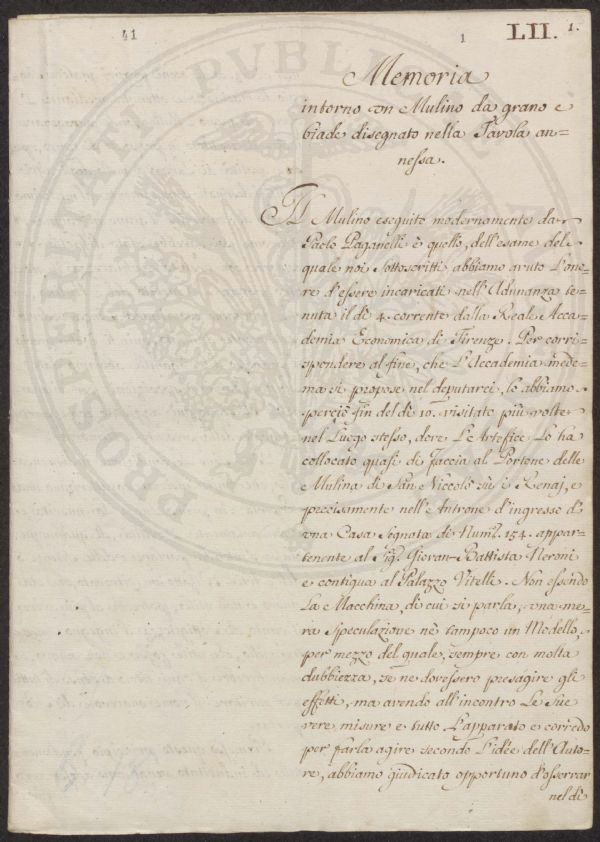 41
1
LII. 1.
Memoria
intorno un Mulino da grano e
biade disegnato nella Tavola an=
nessa.
Il Mulino eseguito modernamente da
Paolo Paganelli è quello, dell'esame del
quale noi sottoscritti abbiamo avuto l'ono=
re d'essere incaricati nell'Adunanza te=
nuta il dì 4. corrente dalla Reale Acca=
demia Economica di Firenze. Per corri=
spondere al fine, che L'Accademia mede=
ma si propose nel deputarci, lo abbiamo
perciò fin del dì 10. visitato più volte
nel Luogo stesso, dove L'Artefice Lo ha
collocato quasi di faccia al Portone delle
Mulina di San Niccolò sù i Renaj, e
precisamente nell'Antrone d'ingresso d'
una Casa segnata di Num.º 154. appar=
tenente al Sig.r Giovan-Battista Neroni
e contigua al Palazzo Vitelli. Non essendo
La Macchina, di cui si parla, una me=
ra speculazione nè tampoco un Modello,
per mezzo del quale, sempre con molta
dubbiezza, se ne dovessero presagire gli
effetti, ma avendo all'incontro Le sue
vere misure e tutto L'apparato e corredo
per farla agire secondo L'idee dell'Auto=
re, abbiamo giudicato opportuno d'osservar
nel dì
PROSPERITATI PVBLICAE